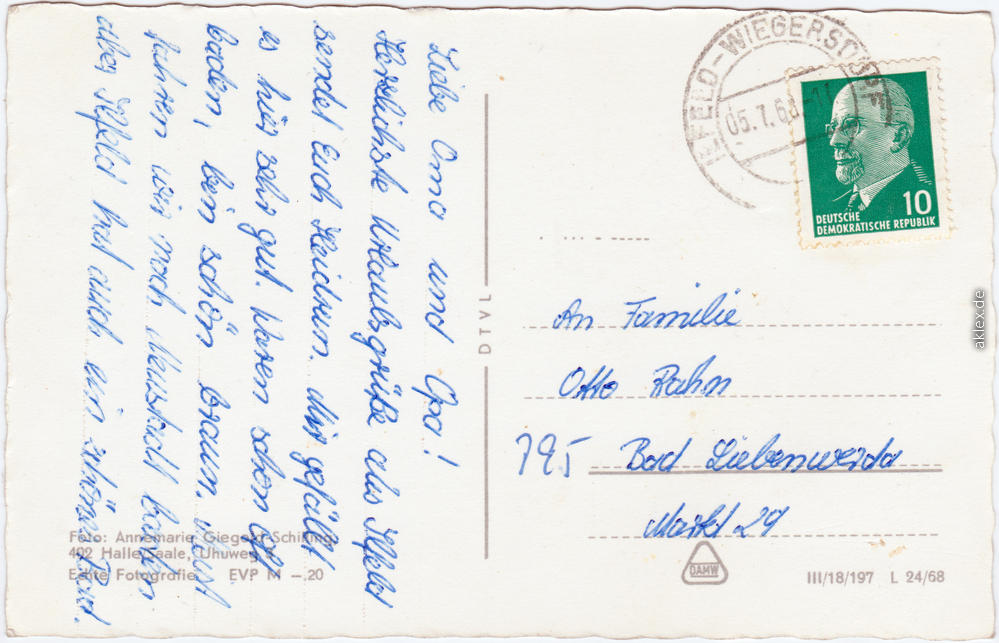 Liebe Oma und Opa!
Herzlichste Urlaubsgrüße aus Ilfeld
sendet Euch Heidrun. Mir gefällt
es hier sehr gut. Waren schon oft
baden, bin schön braun. Meist
fahren wir nach Neustadt baden
aber Ilfeld hat auch ein schönes Bad.
Foto: Annemarie Giegold-Schilling
402 Halle/Saale, Uhuweg
Echte Fotografie EVP M -.20
DTVL
ILFELD-WIEGERSDORF
05.7.68-11
10
DEUTSCHE
DEMOKRATISCHE REPUBLIK
An Familie
Otto Rahn
795 Bad Liebenwerda
Markt 29
DAMW
III/18/197 L 24/68
aklex.de